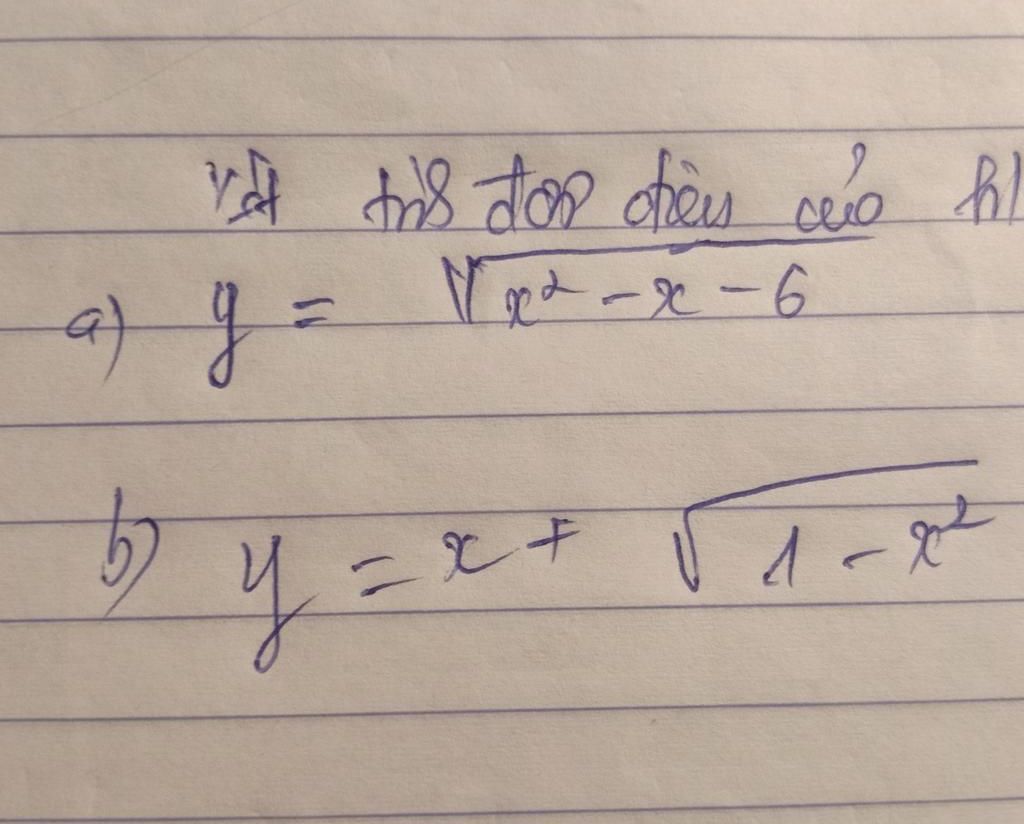 xét tính đơn điệu của h
a) y = √x² - x - 6
b) y = x + √1 - x²